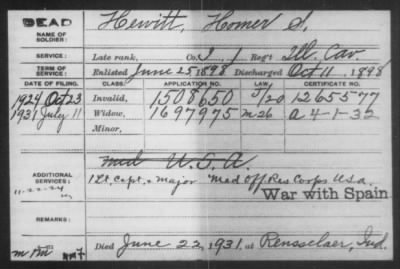 DEAD
NAME OF SOLDIER: Hewitt, Homer S.
SERVICE: Late rank, Co. I, 1 Reg't Ill. Cav.
TERM OF SERVICE: Enlisted June 25 1898 Discharged Oct 11, 1898
DATE OF FILING. CLASS. APPLICATION NO. LAW. CERTIFICATE NO.
1924 Oct 23 Invalid, 1508650 5/20 1265577
1931 July 11 Widow, 1697975 M26 a 4-1-32
Minor,
med U.S.A.
ADDITIONAL SERVICES: 1 Lt, Capt. & Major Med Off Res Corps U.S.A.
11-22-24
War with Spain
REMARKS:
Died June 22, 1931, at Rensselaer, Ind.